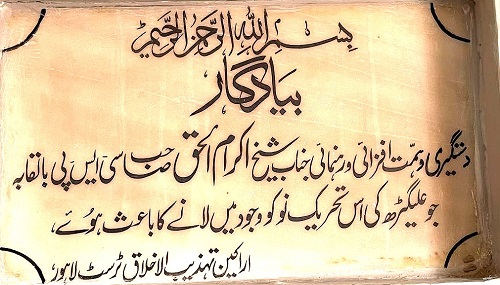 بسم اللہ الرحمن الرحیم
بیادگار
دستگیری و ہمت افزائی و رہنمائی جناب شیخ اکرام الحق صاحب سی ایس پی بالقابہ
جو علیگڑھ کی اس تحریک نو کو وجود میں لانے کا باعث ہوئے،
اراکین تہذیب الاخلاق ٹرسٹ لاہور